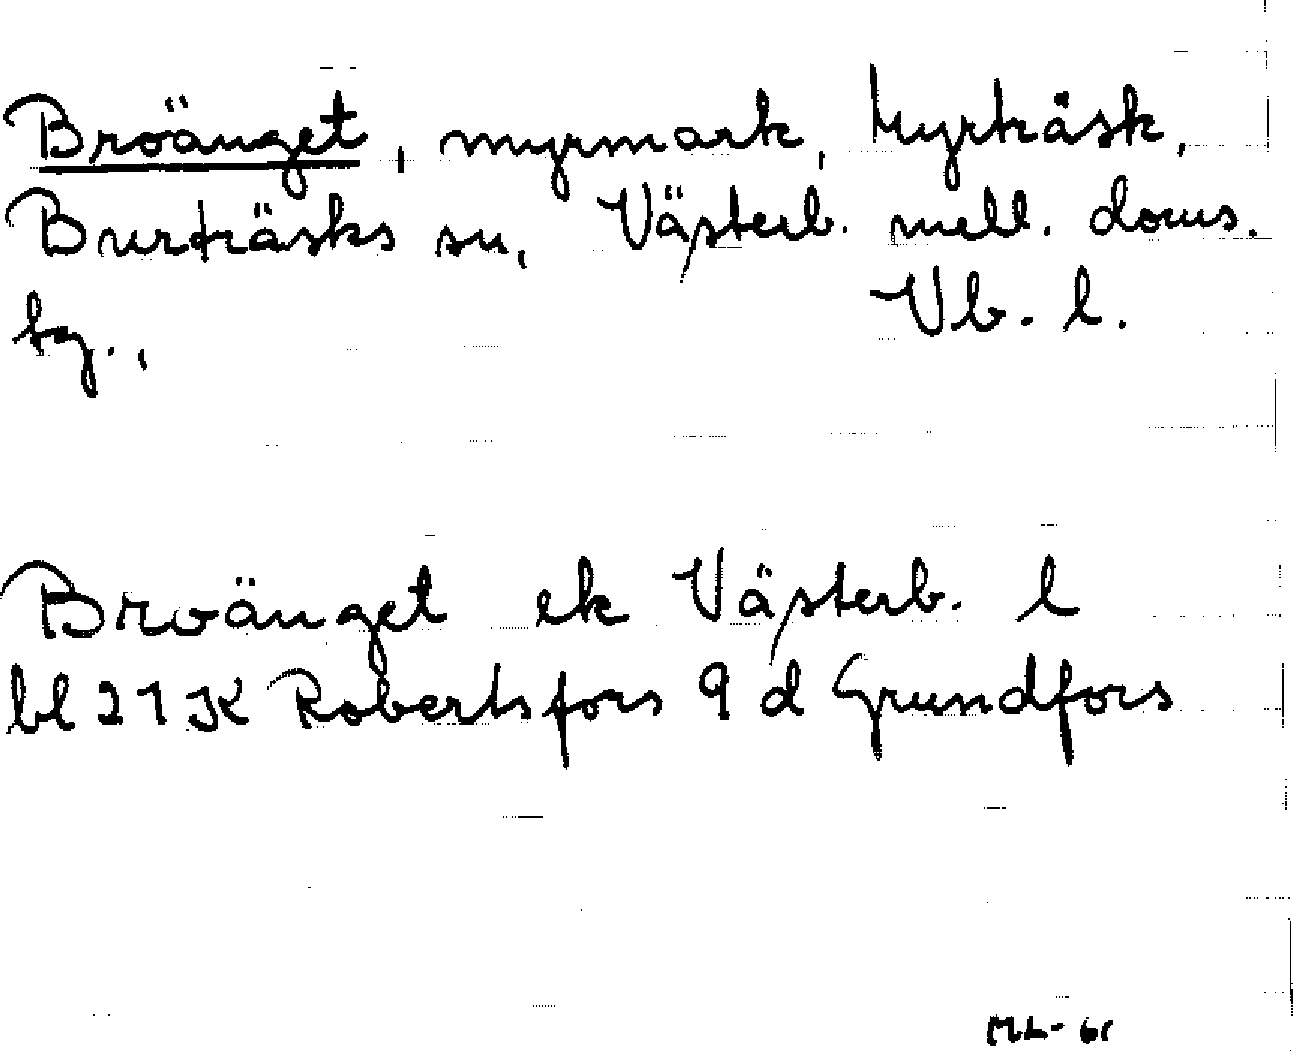 Broänget, myrmark, Myrträsk,
Burträsks sn, Västerb. mell. doms.
tg.,
Vb. l.
Broänget ek Västerb. l
bl 21 K Robertsfors 9 d Grundfors
ML-61